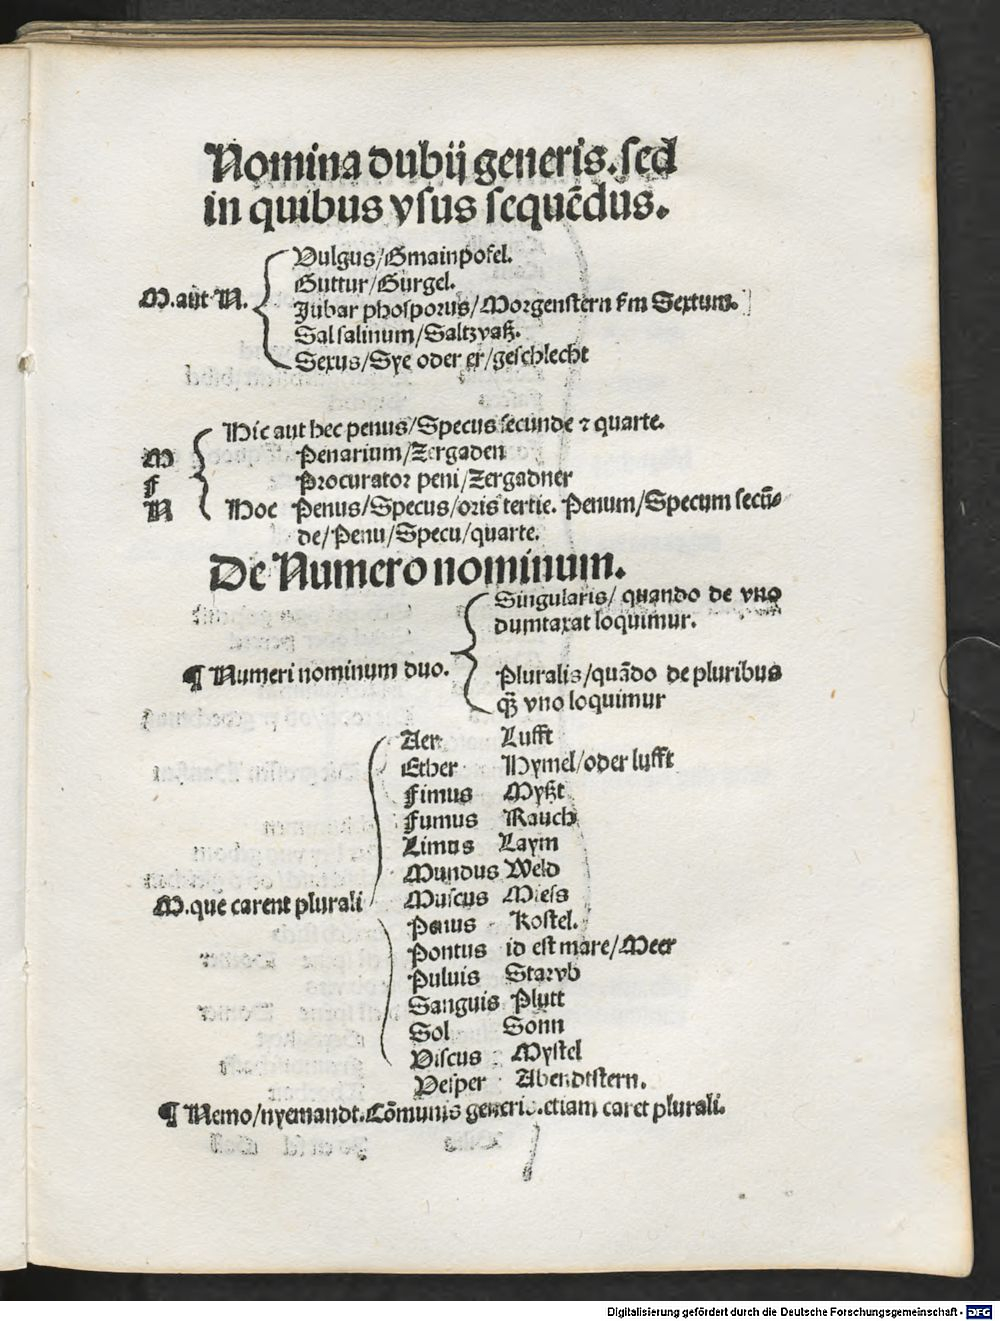 Nomina dubij generis. sed
in quibus vsus sequēdus.
M. aut N.
Vulgus/Gmainpofel.
Guttur/Gurgel.
Jubar phosporus/Morgenstern ẜm Sextum.
Sal salinum/Saltzvaß.
Sexus/Sye oder er/geschlecht
M
F
N
Hic aut hec penus/Specus secunde ⁊ quarte.
Penarium/Zergaden
Procurator peni/Zergadner
Hoc Penus/Specus/oris tertie. Penum/Specum secū⸗
de/Penu/Specu/quarte.
De Numero nominum.
¶ Numeri nominum duo.
Singularis/ quando de vno
dumtaxat loquimur.
Pluralis/quādo de pluribus
qȝ vno loquimur
M. que carent plurali
Aer Lufft
Ether Hymel/oder lufft
Fimus Myßt
Fumus Rauch
Limus Laym
Mundus Weld
Muscus Miess
Penus Kostel.
Pontus id est mare/Meer
Puluis Stavb
Sanguis Plutt
Sol Sonn
Viscus Mystel
Vesper Abendtstern.
¶ Nemo/nyemandt. Cōmunis generis. etiam caret plurali.
Digitalisierung gefördert durch die Deutsche Forschungsgemeinschaft - DFG